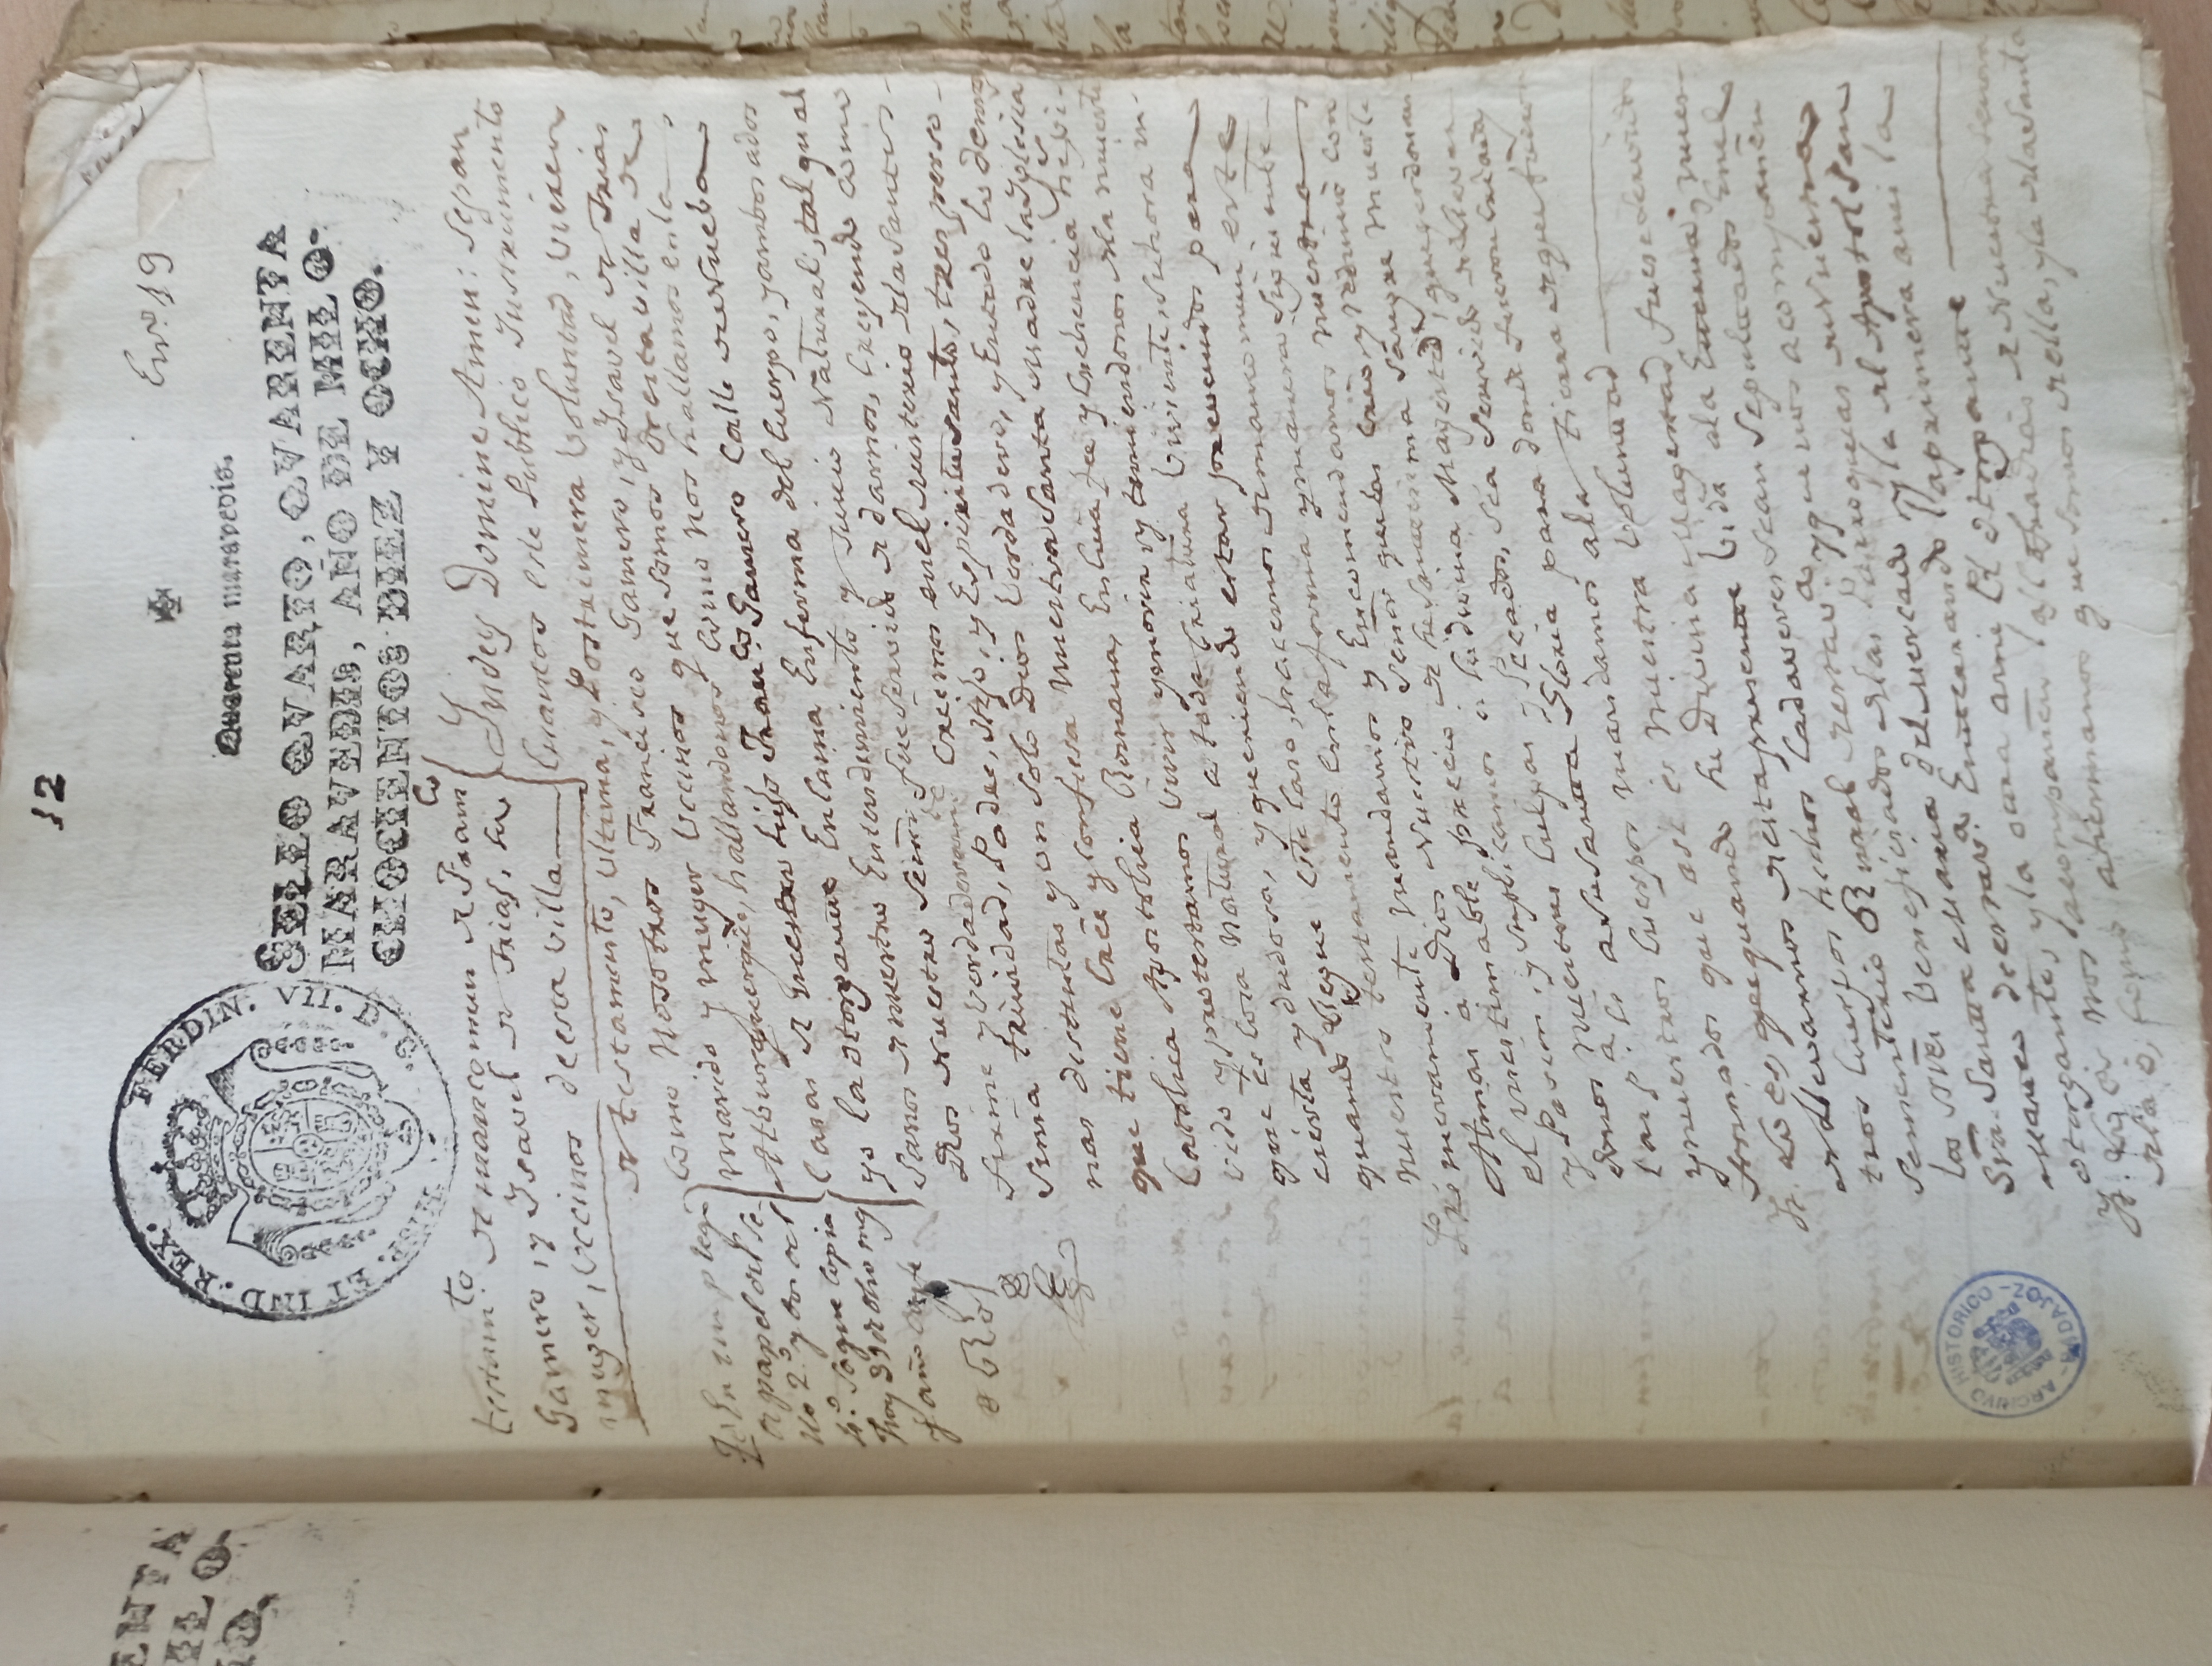 12
En.º 19
Quarenta maravedis.
HISP. ET IND. REX. FERDIN. VII. D. G.
SELLO QVARTO, QVARENTA
MARAVEDIS, AÑO DE MIL O-
CHOCIENTOS DIEZ Y OCHO.
testam.to de mancomun de Fran.co
Gamero, y Ysavel de Frias, su
muger, vecinos de esta villa
Yn dey Domine Amen: Sepan
Quantos este Publico Ynstrumento
de testamento, ultima, y Postrimera voluntad, vieren
como Nosotros Francisco Gamero, y Ysavel de Frias
marido y muger vecinos que somos de esta villa de
Alburquerque, hallandonos como nos hallamos en la
casas de nuestro hijo Fran.co Gamero Calle de Nueba
yo la otorgante En cama Enferma del Cuerpo, y ambos ados
sanos de nuestro Entendimiento y Juicio Natural, tal qual
Dios Nuestro Señor, fue servido de darnos, Creyendo como
firme y verdaderam.te Creemos en el Misterio de la Santis-
sima trinidad, Padre, Hijo, y Espiritu santo, tres perso-
nas distintas y un solo Dios verdadero, y En todo lo demas
que tiene Cree y confiesa Nuestra Santa Madre la Yglesia
Catolica Apostolica Romana, En cuia fee y Crehencia hē vi-
vido y protestamos vivir y morir, y temiendonos de la muerte
que es cosa Natural a toda Criatura viviente, su hora in-
cierta y dudosa, y queriendo estar prevenidos para
quando llegue este caso, hacemos de mancomun este
nuestro testamento en la forma y manera siguiente
Primeramente mandamos y Encomendamos nuestra
Almas a Dios Nuestro Señor que las crió y redimió con
el inestimable precio de su Santissima Sangre Muerte
y Pasion, y suplicamos a su divina Magestad, que perdonan-
donos nuestras Culpas y Pecados, sea servido de llevar
las p.a si a su Santa Gloria para donde fueron criadas
y nuestros Cuerpos mandamos a la tierra de que fueron
formados que asi es nuestra voluntad
Yt. Lo es, que quando su Divina Magestad fuese servido
de llevarnos de esta presente vida a la Eterna, nues-
tros Cuerpos hechos Cadaveres sean sepultados En el
Sementerio Rural de esta v.a y que nos acompañen
los SSres Beneficiados de las Parroquias de Nuestra
Sra. Santa Maria del Mercado, y la del Apostol San
Mateo de esta v.a Enterrando la primera a mi la
otorgante, y la otra a mi El otorgante
Yt. Lo es nos acompañen las Cofradias de Nuestra Señora
de la o, como a hermanos que somos de ella, y la de la Santa
En un plego
de papel del Se-
llo 2.º y dos del
4.º saque copia
hoy 23 de dho mes
y año
ARCHIVO HISTORICO - BADAJOZ